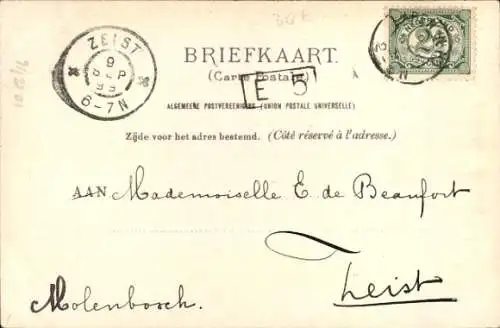 ZEIST
9
SEP
99
6-7N
BRIEFKAART.
(Carte Postale)
E 5
ALGEMEENE POSTVEREENIGING (UNION POSTALE UNIVERSELLE)
Zijde voor het adres bestemd. (Côté réservé à l'adresse.)
AAN Mademoiselle E. de Beaufort
Zeist
Molenbosch.